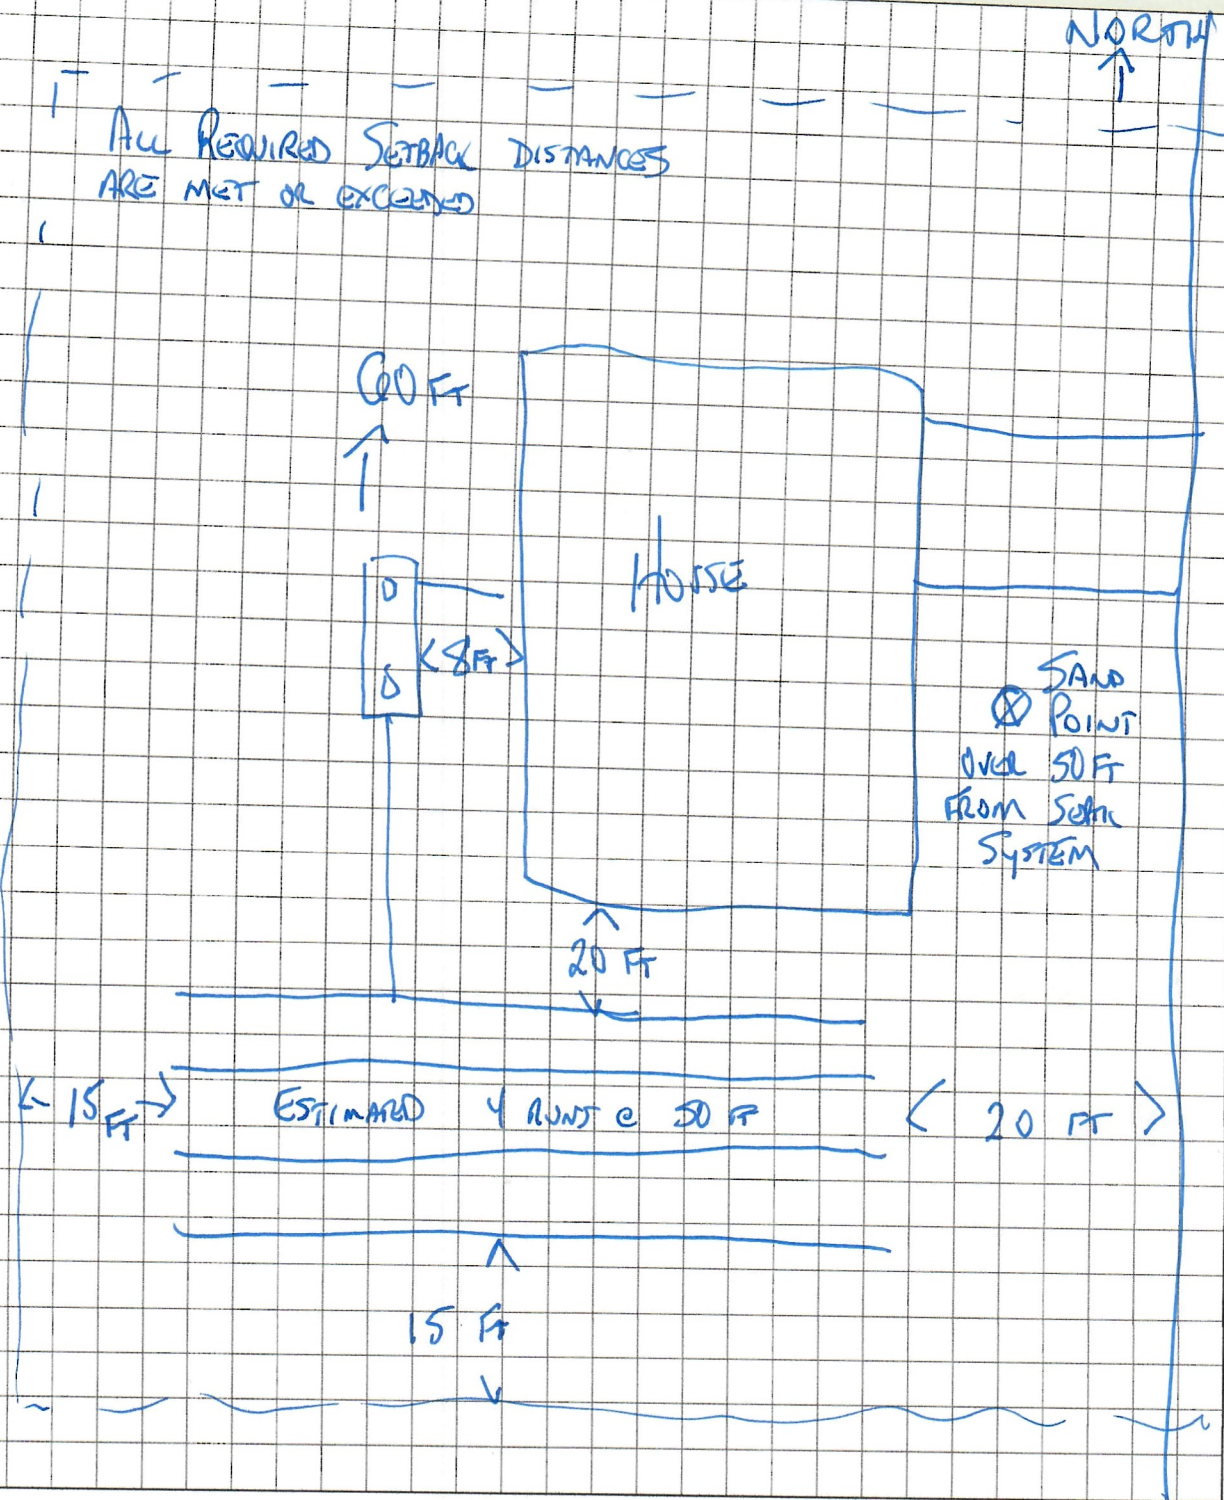 NORTH
ALL REQUIRED SETBACK DISTANCES
ARE MET OR EXCEEDED
60 FT
HOUSE
8 FT
SAND
POINT
OVER 50 FT
FROM SEPTIC
SYSTEM
20 FT
15 FT
ESTIMATED 4 RUNS @ 50 FT
20 FT
15 FT